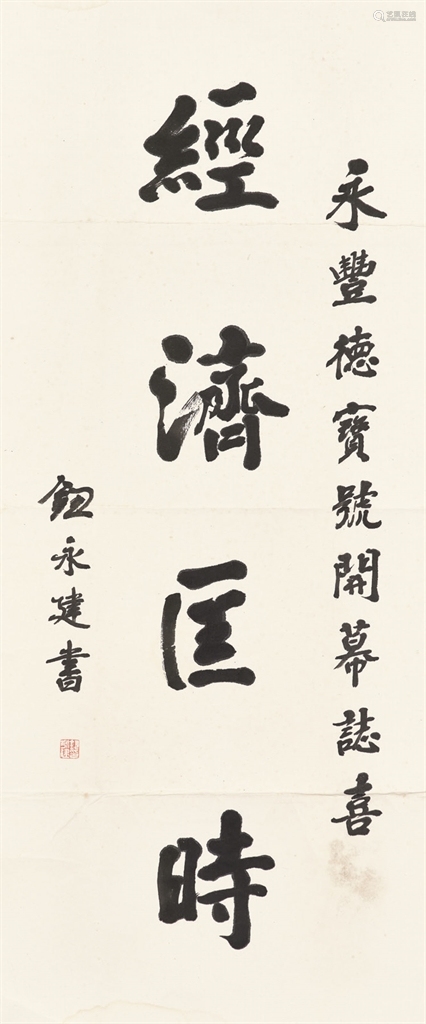 永豐德寶號開幕誌喜
經濟匡時
鈕永建書
艺狐在线